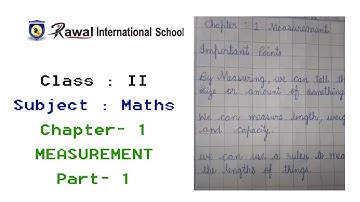 Rawal International School
Class : II
Subject : Maths
Chapter- 1
MEASUREMENT
Part- 1
Chapter : 1 Measurement
Important Points
By Measuring, we can tell the
size or amount of something
We can measure length, weig
and capacity.
we can use a ruler to mea
the lengths of things.